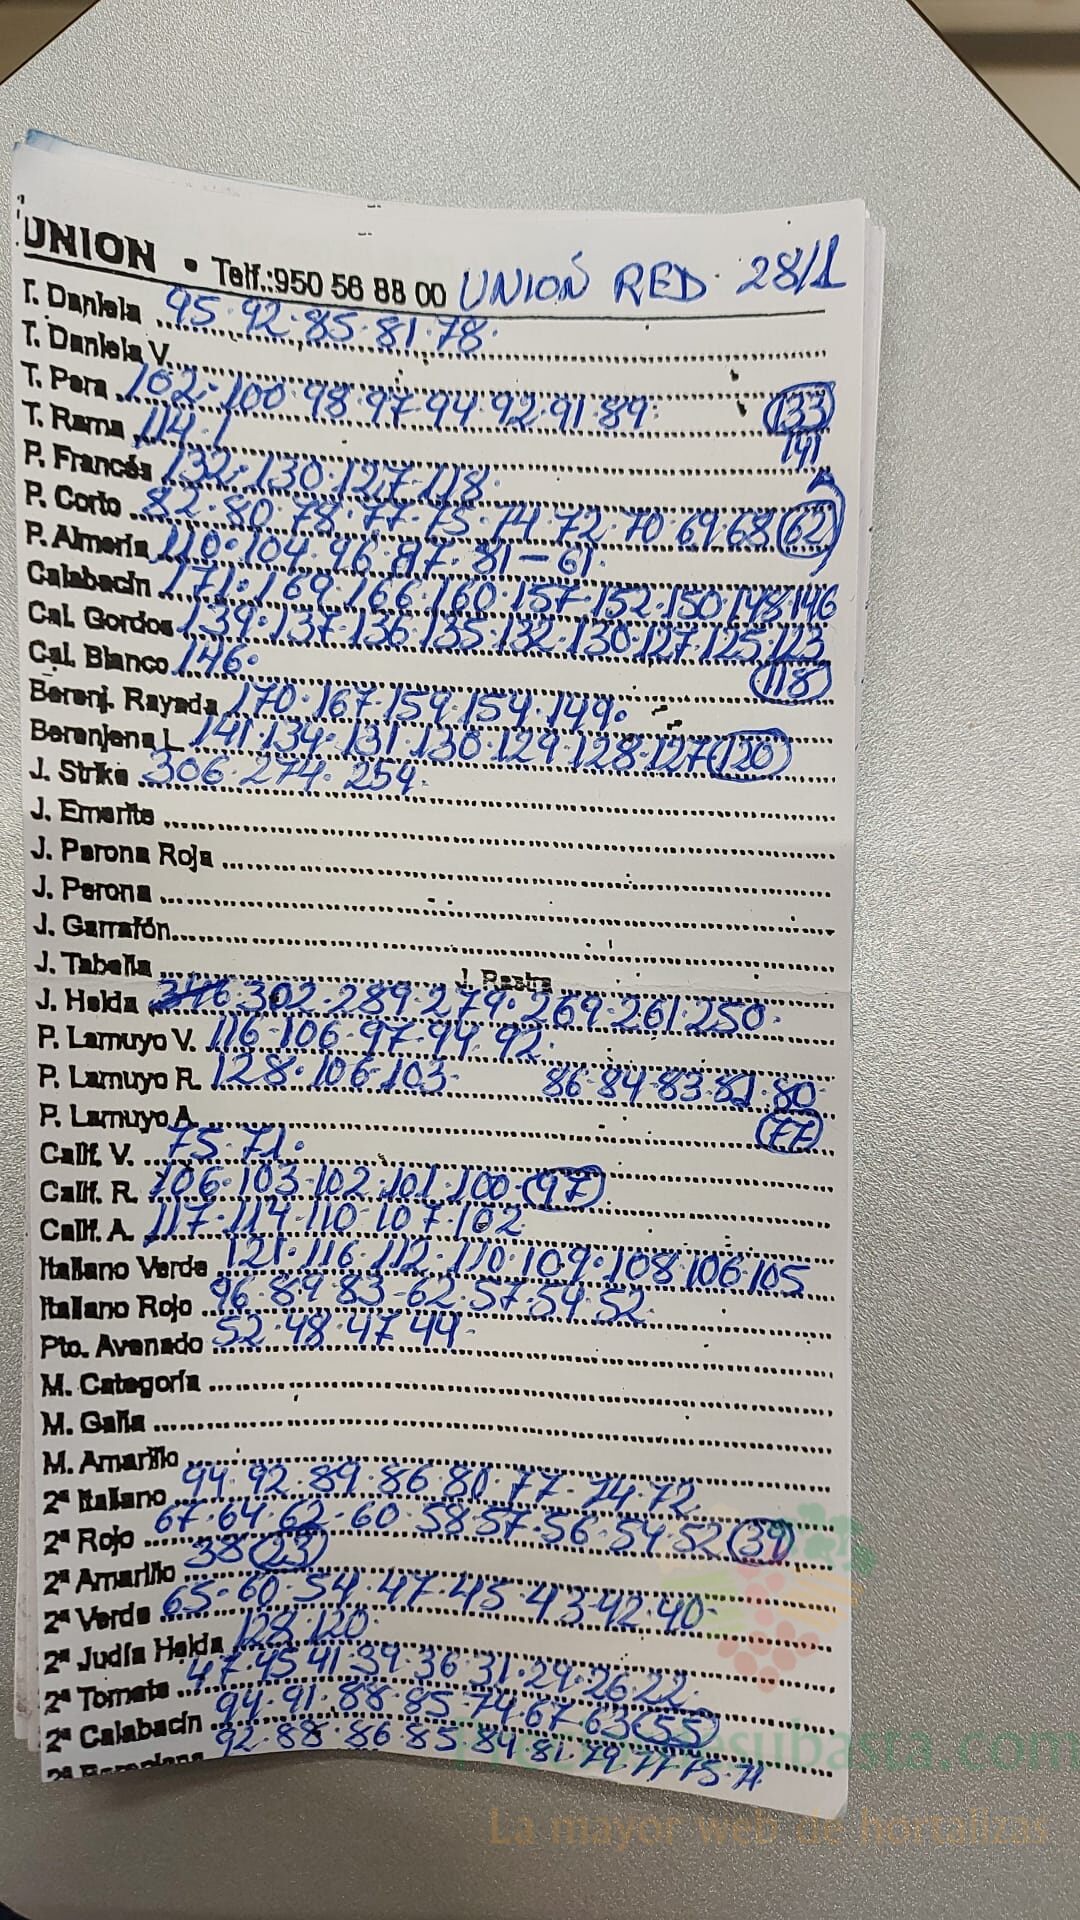 UNION • Telf.:950 56 88 00 UNIÓN RED. 28/1
T. Daniela 95.92.85.81.78.
T. Daniela V.
T. Pera 102.100.98.97.94.92.91.89. (133)
T. Rama 114.1 141
P. Francés 132.130.127.118.
P. Corto 82.80.78.77.75.74.72.70.69.68 (62)
P. Almería 110.104.96.87.81-61.
Calabacín 171.169.166.160.157.152.150.148.146
Cal. Gordos 139.137.136.135.132.130.127.125.123
Cal. Blanco 146. (118)
Berenj. Rayada 170.167.159.154.149.
Berenjena L. 141.134.131.130.129.128.127 (120)
J. Strike 306.274.254.
J. Emerite
J. Perona Roja
J. Perona
J. Garrafón
J. Tabella J. Rastra
J. Helda 302.289.279.269.261.250.
P. Lamuyo V. 116.106.97.94.92.
P. Lamuyo R. 128.106.103. 86.84.83.82.80.
P. Lamuyo A. (77)
Calif. V. 75.71.
Calif. R. 106.103.102.101.100.(97)
Calif. A. 117.114.110.107.102
Italiano Verde 121.116.112.110.109.108.106.105
Italiano Rojo 96.89.83-62.57.54.52.
Pto. Avenado 52.48.47.44.
M. Categoría
M. Galia
M. Amarillo
2ª Italiano 94.92.89.86.80.77.74.72.
2ª Rojo 67.64.62.60.58.57.56.54.52 (39)
2ª Amarillo 38 (23)
2ª Verde 65.60.54.47.45.43.42.40.
2ª Judía Helda 128.120.
2ª Tomate 47.45.41.39.36.31.29.26.22.
2ª Calabacín 94.91.88.85.74.67.63 (55)
2ª Berenjena 92.88.86.85.84.81.79.77.75.71
La mayor web de hortalizas